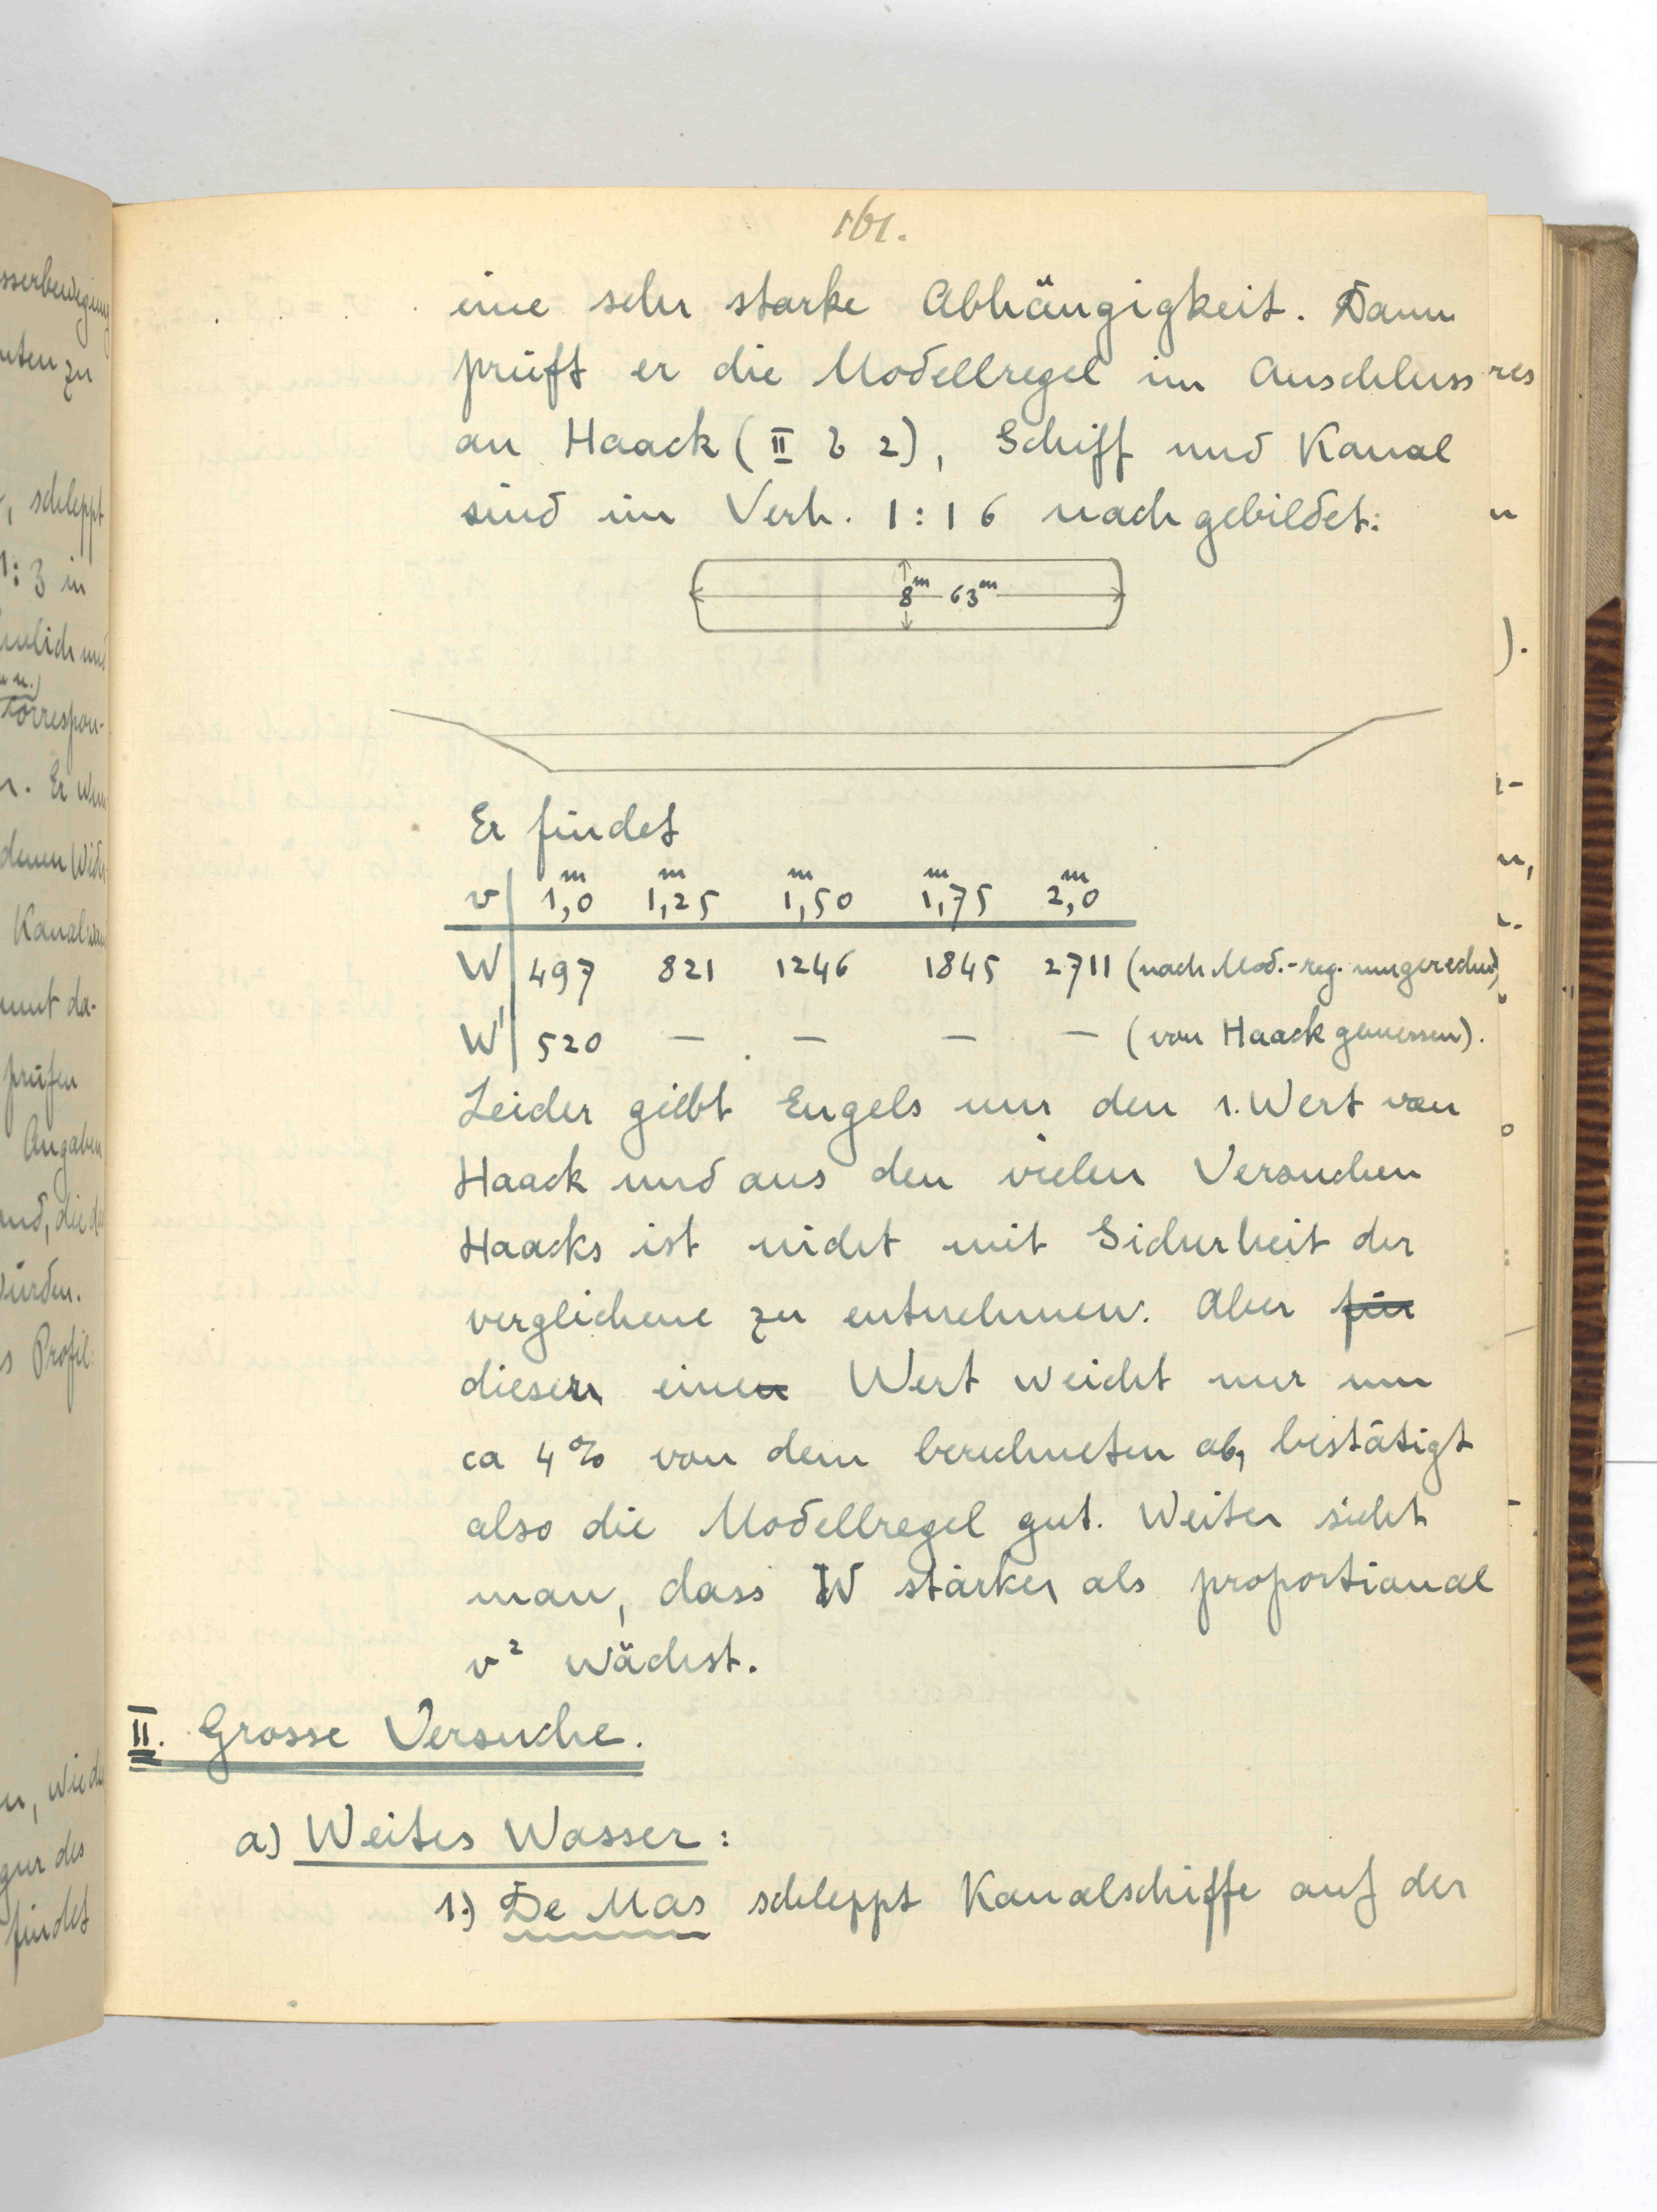 161.
eine sehr starke Abhängigkeit. Dann
prüft er die Modellregel im Anschluss
an Haack (II b 2), Schiff und Kanal
sind im Verh. 1:16 nachgebildet:
8m 63m
Er findet
v | 1,0m 1,25m 1,50m 1,75m 2,0m
W | 497 821 1246 1845 2711 (nach Mod.-reg. umgerechnet)
W' | 520 — — — — (von Haack gemessen).
Leider giebt Engels nur den 1. Wert von
Haack und aus den vielen Versuchen
Haacks ist nicht mit Sicherheit der
verglichene zu entnehmen. Aber für
dieser eine Wert weicht nur um
ca 4% von dem berechneten ab, bestätigt
also die Modellregel gut. Weiter sieht
man, dass W stärker als proportional
v² wächst.
II. Grosse Versuche.
a) Weites Wasser:
1.) De Mas schleppt Kanalschiffe auf der